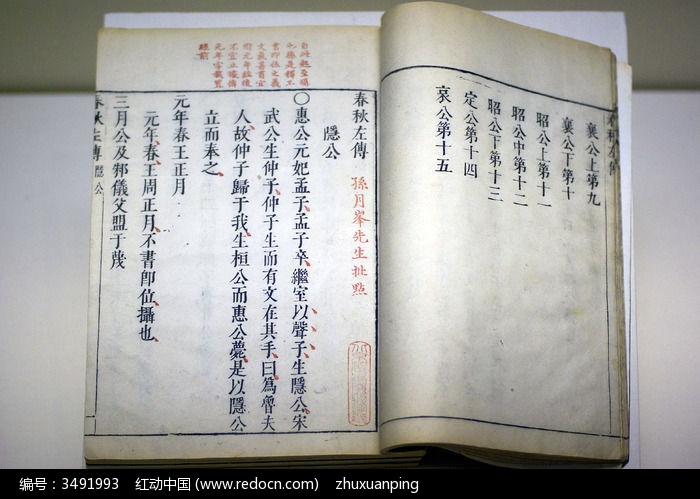 襄公上第九
襄公下第十
昭公上第十一
昭公中第十二
昭公下第十三
定公第十四
哀公第十五
自此起至攝
也總是釋不
書即位之義
元年經後
不宜止據傳
元年字截置
經前
春秋左傳 孫月峯先生批點
隱公
○惠公元妃孟子、孟子卒、繼室以聲子、生隱公、宋
武公生仲子、仲子生而有文在其手、曰爲魯夫
人、故仲子歸于我、生桓公而惠公薨、是以隱公
立而奉之、
元年春王正月
元年、春、王周正月、不書即位、攝也、
三月公及邾儀父盟于蔑
春秋左傳 隱公
编号：3491993 红动中国 (www.redocn.com) zhuxuanping